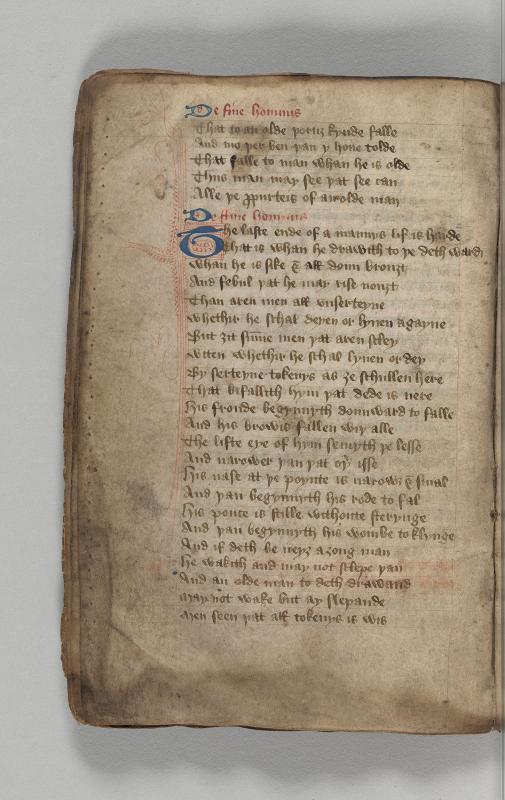 De fine hominis
That to an olde portiz kynde falle
And mo þer ben þan y haue tolde
That falle to man whan he is olde
Thus man may see þat see can
Alle þe ꝓpurteis of an olde man
De fine hominis
The laste ende of a mannys lif is harde
That is whan he drawith to þe deth ward
Whan he is sike & all doun brouȝt
And febul þat he may rise nouȝt
Than aren men all vnserteyne
Whethir he schal deyen or lyuen agayne
But ȝit sūme men þat aren sley
Witen whethir he schal lyuen or dey
By serteyne tokenys as ȝe schullen here
That bifallith hym þat dede is nere
His fronde begynnyth dounward to falle
And his browis fallen wiþ alle
The lifte eye of hym semyth þe lesse
And narower þan þat oþ isse
His nase at þe poynte is narowȝ & smal
And þan begynnyth his rode to fal
His ponce is stille withoute sterynge
And þan begynnyth his wombe to klynge
And if deth be neyȝ a ȝong man
He wakith and may not slepe þan
And an olde man to deth drawand
May not wake but ay slepande
Men seen þat all tokenys is wis